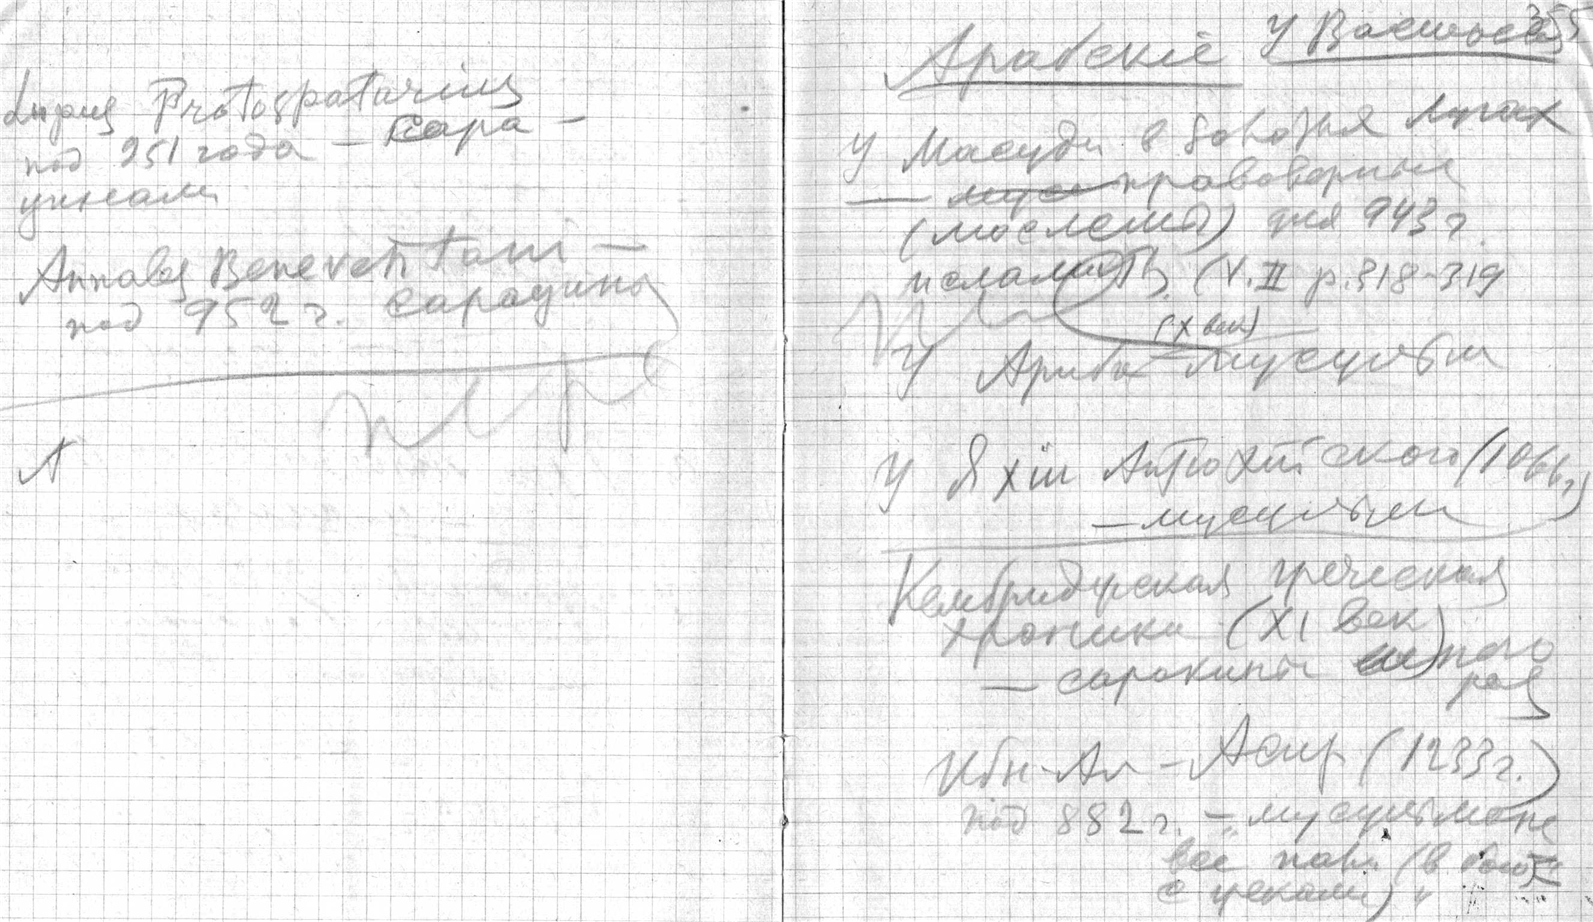 Lupus Protospatarius
под 951 года – Сара-
цинами
Annales Beneventani –
под 952 г. сарацины
А
355
Арабскіе У Васильева
У Масуди в
– правоверный
(мослемы) для 943 г.
(V. II p. 318-319
(X век)
У Ариба – мусульм
У Яхіи Антіохійского (1066 г)
– мусульм
Кембриджская греческая
хроника (XI век)
– саракины много
раз
Ибн-Ал-Асир (1233 г.)
под 882 г. – "мусульмане
все пали (в бою
с греками) "